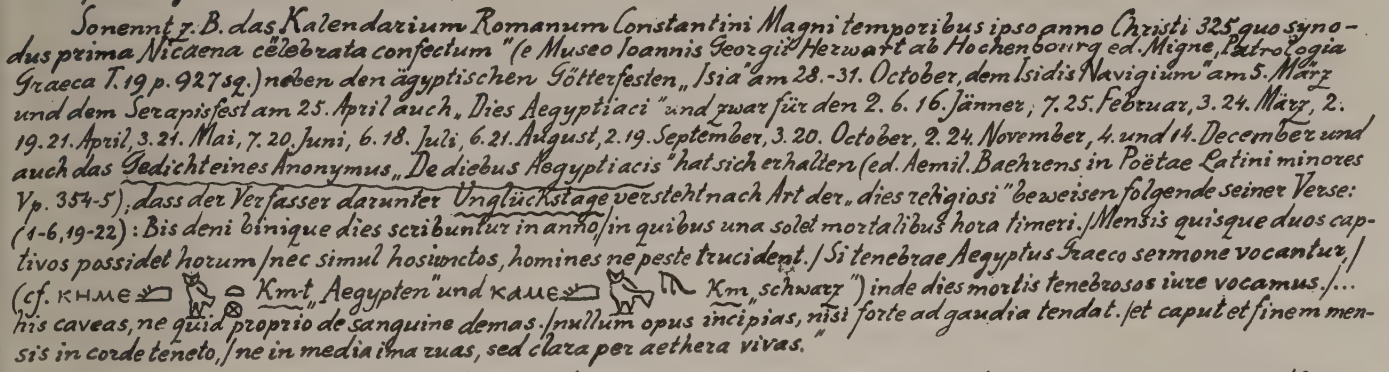 So nennt z. B. das Kalendarium Romanum Constantini Magni temporibus ipso anno Christi 325 quo syno-
dus prima Nicaena celebrata confectum" (e Museo Ioannis Georgii Herwart ab Hochenbourg ed. Migne, Patrologia
Graeca T. 19 p. 927 sq.) neben den ägyptischen Götterfesten „Isia" am 28.-31. October, dem Isidis Navigium" am 5. März
und dem Serapisfest am 25. April auch „Dies Aegyptiaci" und zwar für den 2. 6. 16. Jänner, 7. 25. Februar, 3. 24. März, 2.
19. 21. April, 3. 21. Mai, 7. 20. Juni, 6. 18. Juli, 6. 21. August, 2. 19. September, 3. 20. October, 2. 24. November, 4. und 14. December und
auch das Gedicht eines Anonymus „De diebus Aegyptiacis" hat sich erhalten (ed. Aemil. Baehrens in Poëtae Latini minores
V p. 354-5); dass der Verfasser darunter Unglückstage versteht nach Art der „dies religiosi" beweisen folgende seiner Verse:
(1-6, 19-22): Bis deni binique dies scribuntur in anno/in quibus una solet mortalibus hora timeri./Mensis quisque duos cap-
tivos possidet horum/nec simul hos iunctos, homines ne peste trucident./Si tenebrae Aegyptus Graeco sermone vocantur,/
(cf. ⲕⲏⲙⲉ Km-t „Aegypten" und ⲕⲁⲙⲉ Km „schwarz") inde dies mortis tenebrosos iure vocamus./...
his caveas, ne quid proprio de sanguine demas./nullum opus incipias, nisi forte ad gaudia tendat./et caput et finem men-
sis in corde teneto,/ne in media ima ruas, sed clara per aethera vivas."